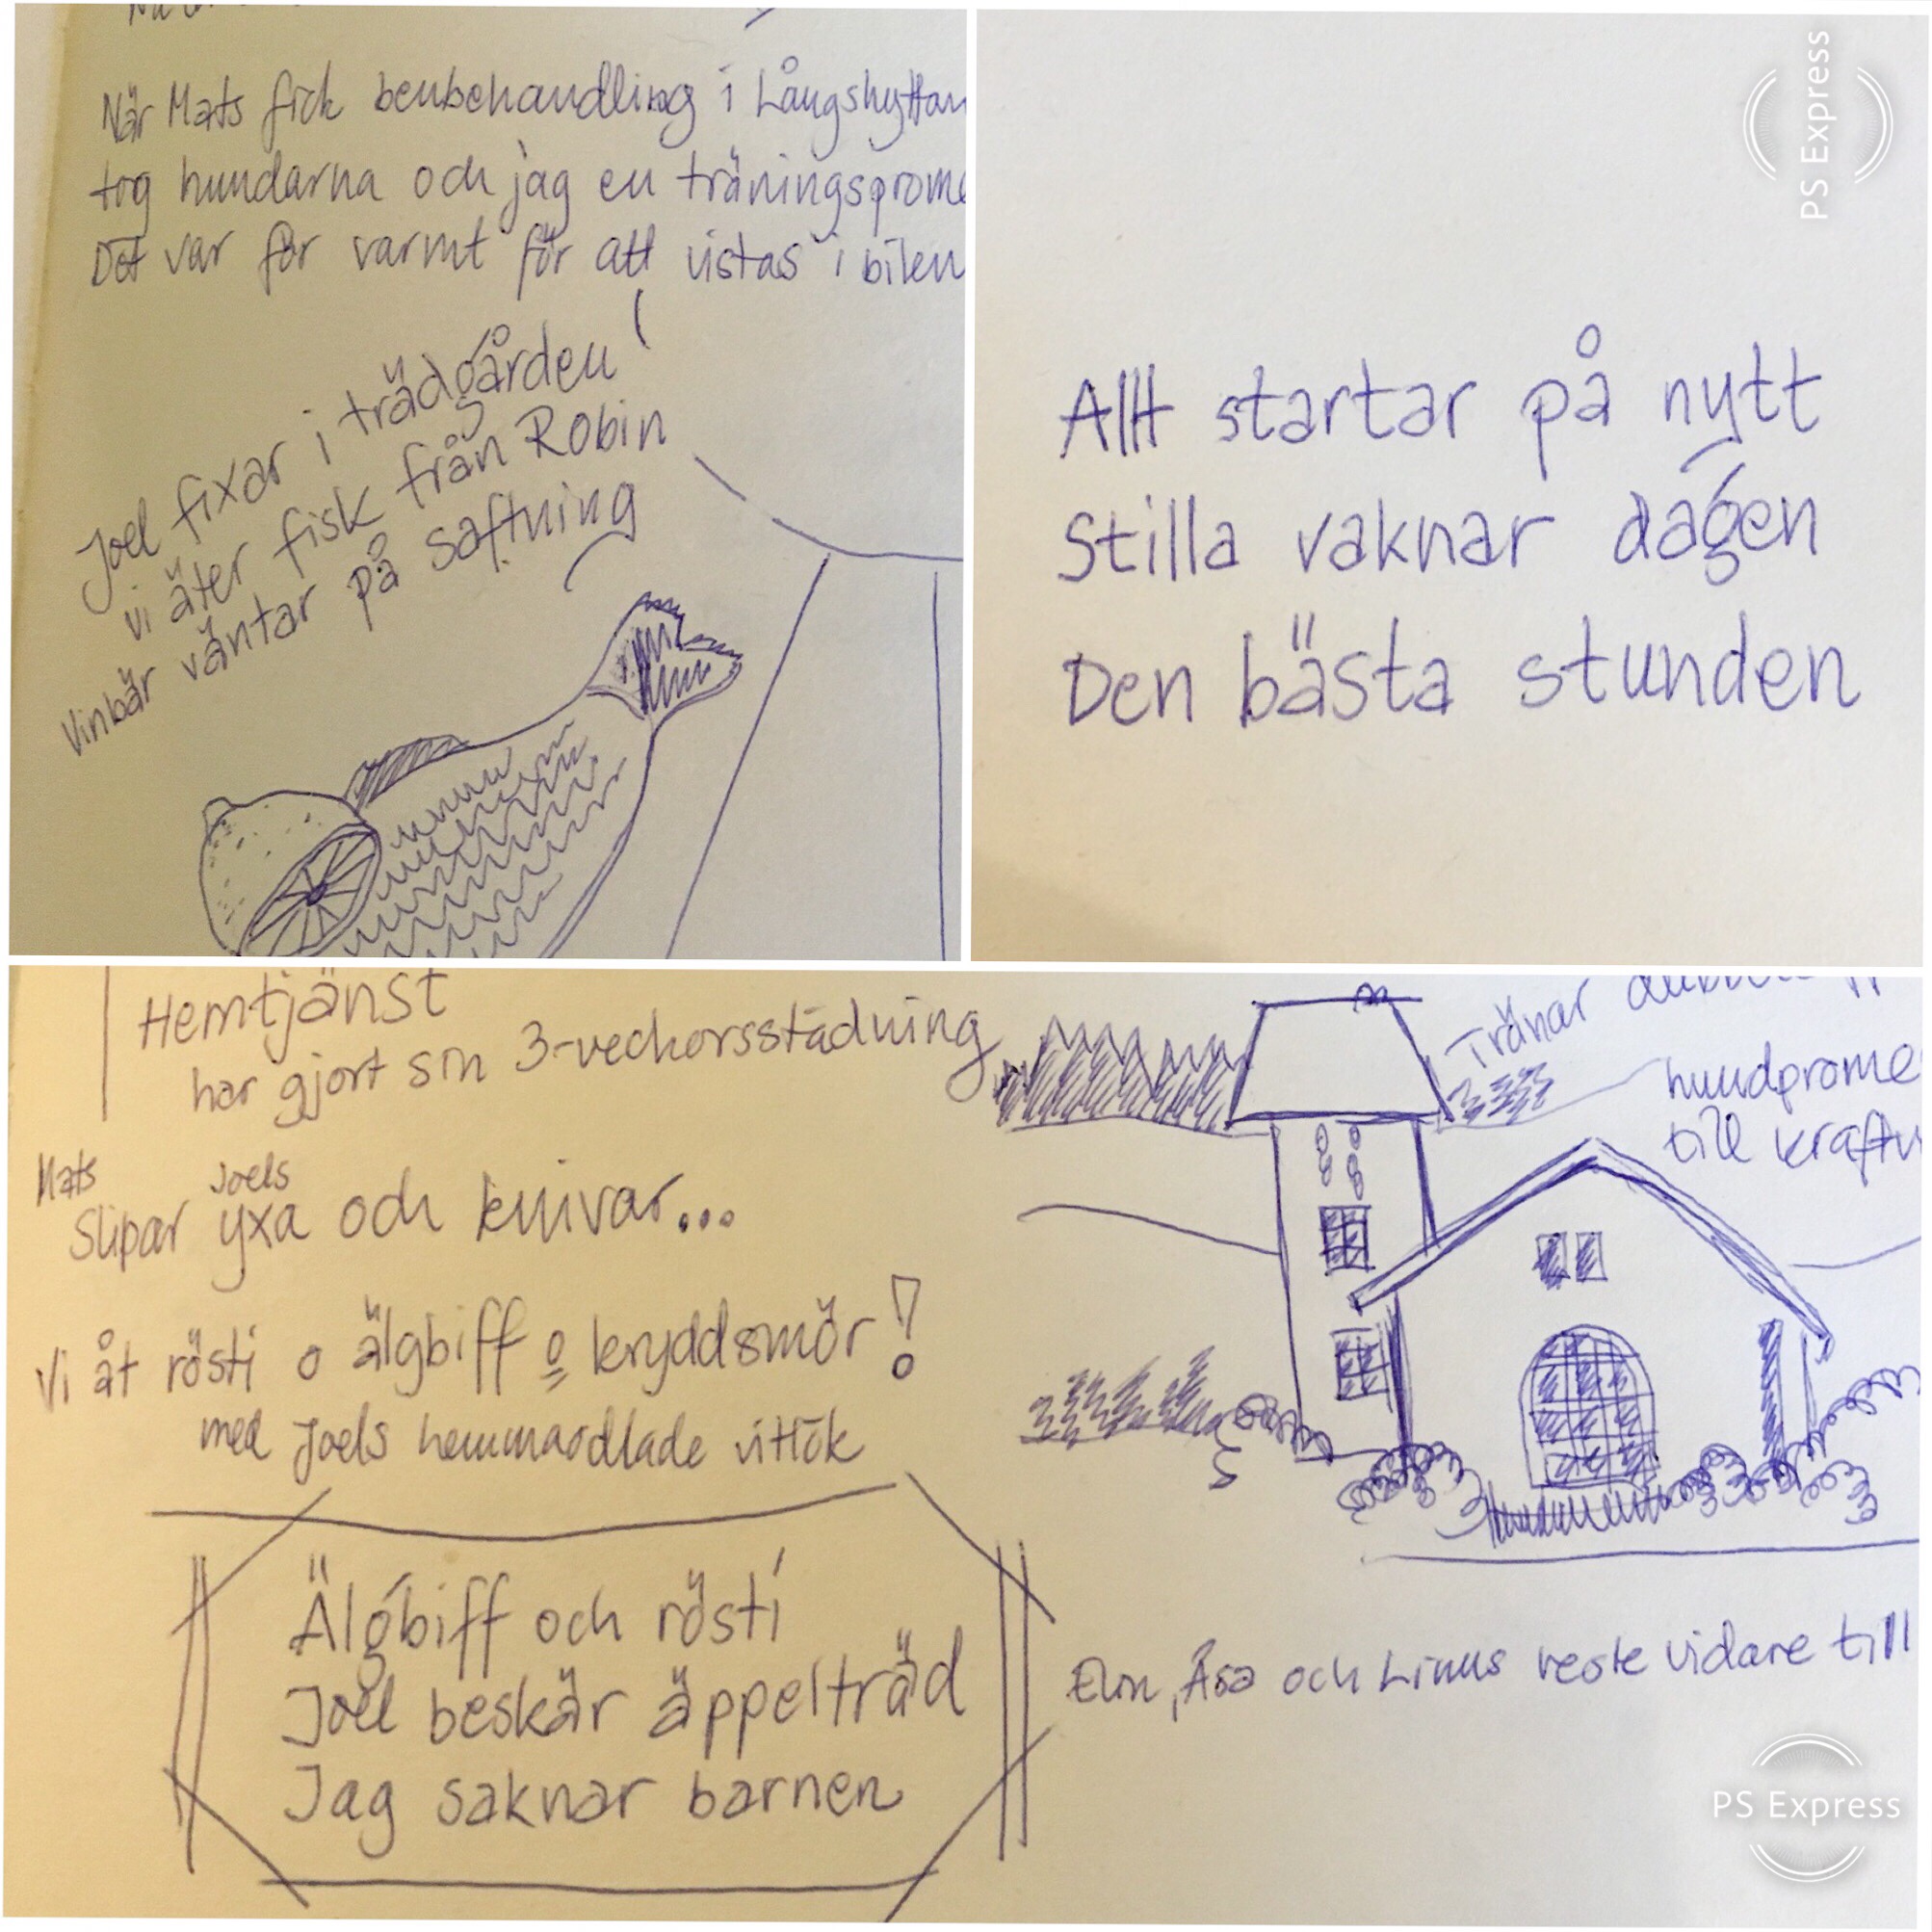 När Mats fick benbehandling i Långshyttan
tog hundarna och jag en träningsprome
Det var för varmt för att vistas i bilen
Joel fixar i trädgården
vi äter fisk från Robin
Vinbär väntar på saftning
PS Express
Allt startar på nytt
stilla vaknar dagen
Den bästa stunden
Hemtjänst
har gjort sin 3-veckorsstädning
Mats
Joels
slipar yxa och knivar...
Vi åt rösti o älgbiff o kryddsmör!
med Joels hemmaodlade vitlök
Älgbiff och rösti
Joel beskär äppelträd
Jag saknar barnen
Tränar
hundprome
till kraftv
Elin, Åsa och Linus reste vidare till
PS Express